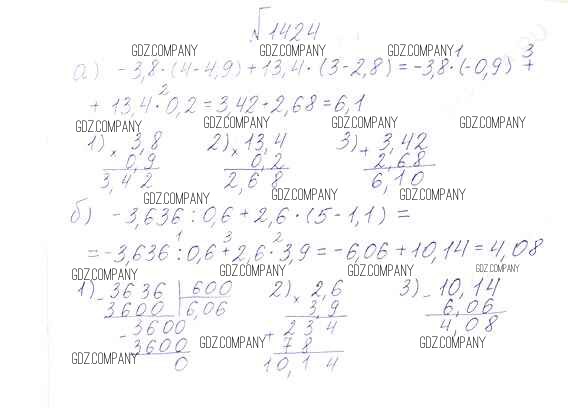 √1424
GDZ.COMPANY GDZ.COMPANY GDZ.COMPANY 1 3
а) -3,8·(4-4,9)+13,4·(3-2,8)=-3,8·(-0,9)+
2
+13,4·0,2=3,42+2,68=6,1
GDZ.COMPANY GDZ.COMPANY GDZ.COMPANY GDZ.COMPANY
1) × 3,8 2) × 13,4 3) + 3,42
0,9 0,2 2,68
3,42 2,68 6,10
GDZ.COMPANY GDZ.COMPANY GDZ.COMPANY
б) -3,636:0,6+2,6·(5-1,1)=
1 3 2
=-3,636:0,6+2,6·3,9=-6,06+10,14=4,08
GDZ.COMPANY GDZ.COMPANY GDZ.COMPANY GDZ.COMPANY
1) - 3636 | 600 2) × 2,6 3) - 10,14
3600 | 6,06 3,9 6,06
- 3600 + 234 4,08
3600 78
GDZ.COMPANY GDZ.COMPANY GDZ.COMPANY
0 10,14